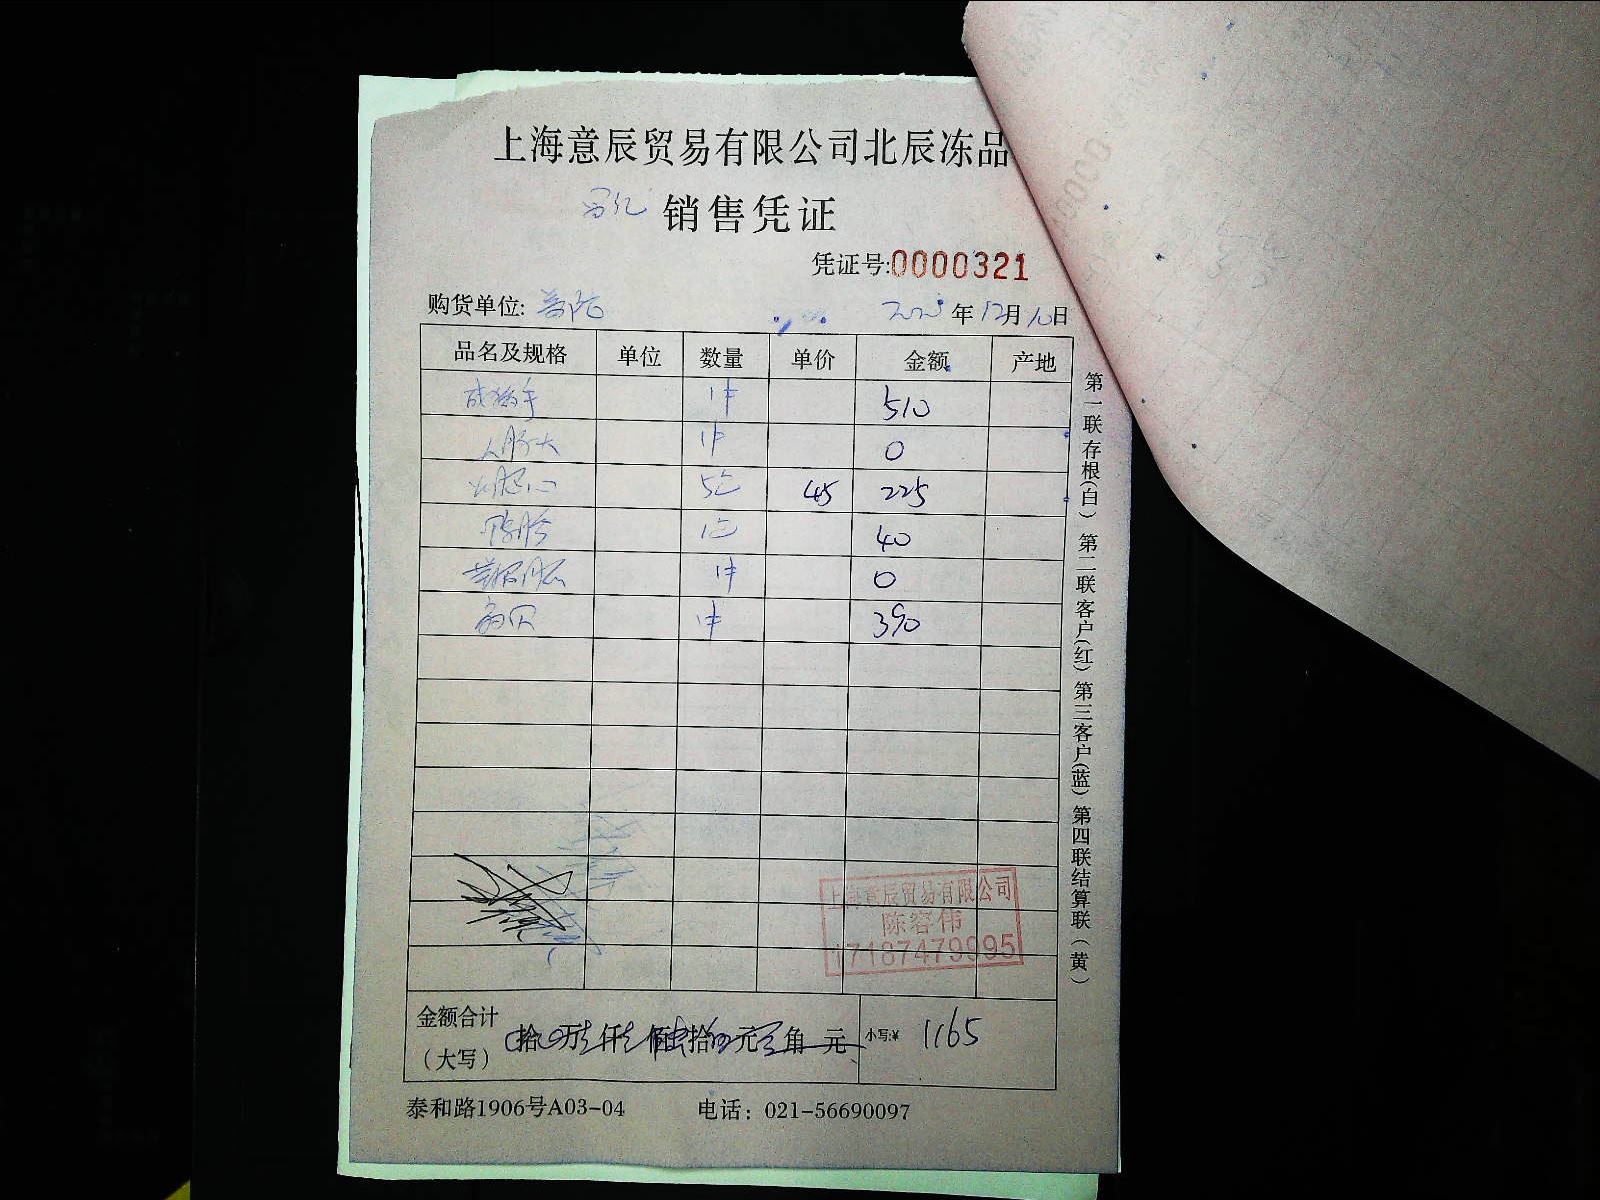 上海意辰贸易有限公司北辰冻品
销售凭证
凭证号:0000321
购货单位: 普陀 年12月10日
品名及规格 单位 数量 单价 金额 产地
1件 510
1件 0
5包 45 225
1包 40
1件 0
扇贝 1件 390
上海意辰贸易有限公司
陈容伟
17187479995
金额合计
(大写) 拾 万 仟 佰 拾 元 角 元 小写:¥ 1165
泰和路1906号A03-04 电话: 021-56690097
第一联存根(白) 第二联客户(红) 第三客户(蓝) 第四联结算联(黄)